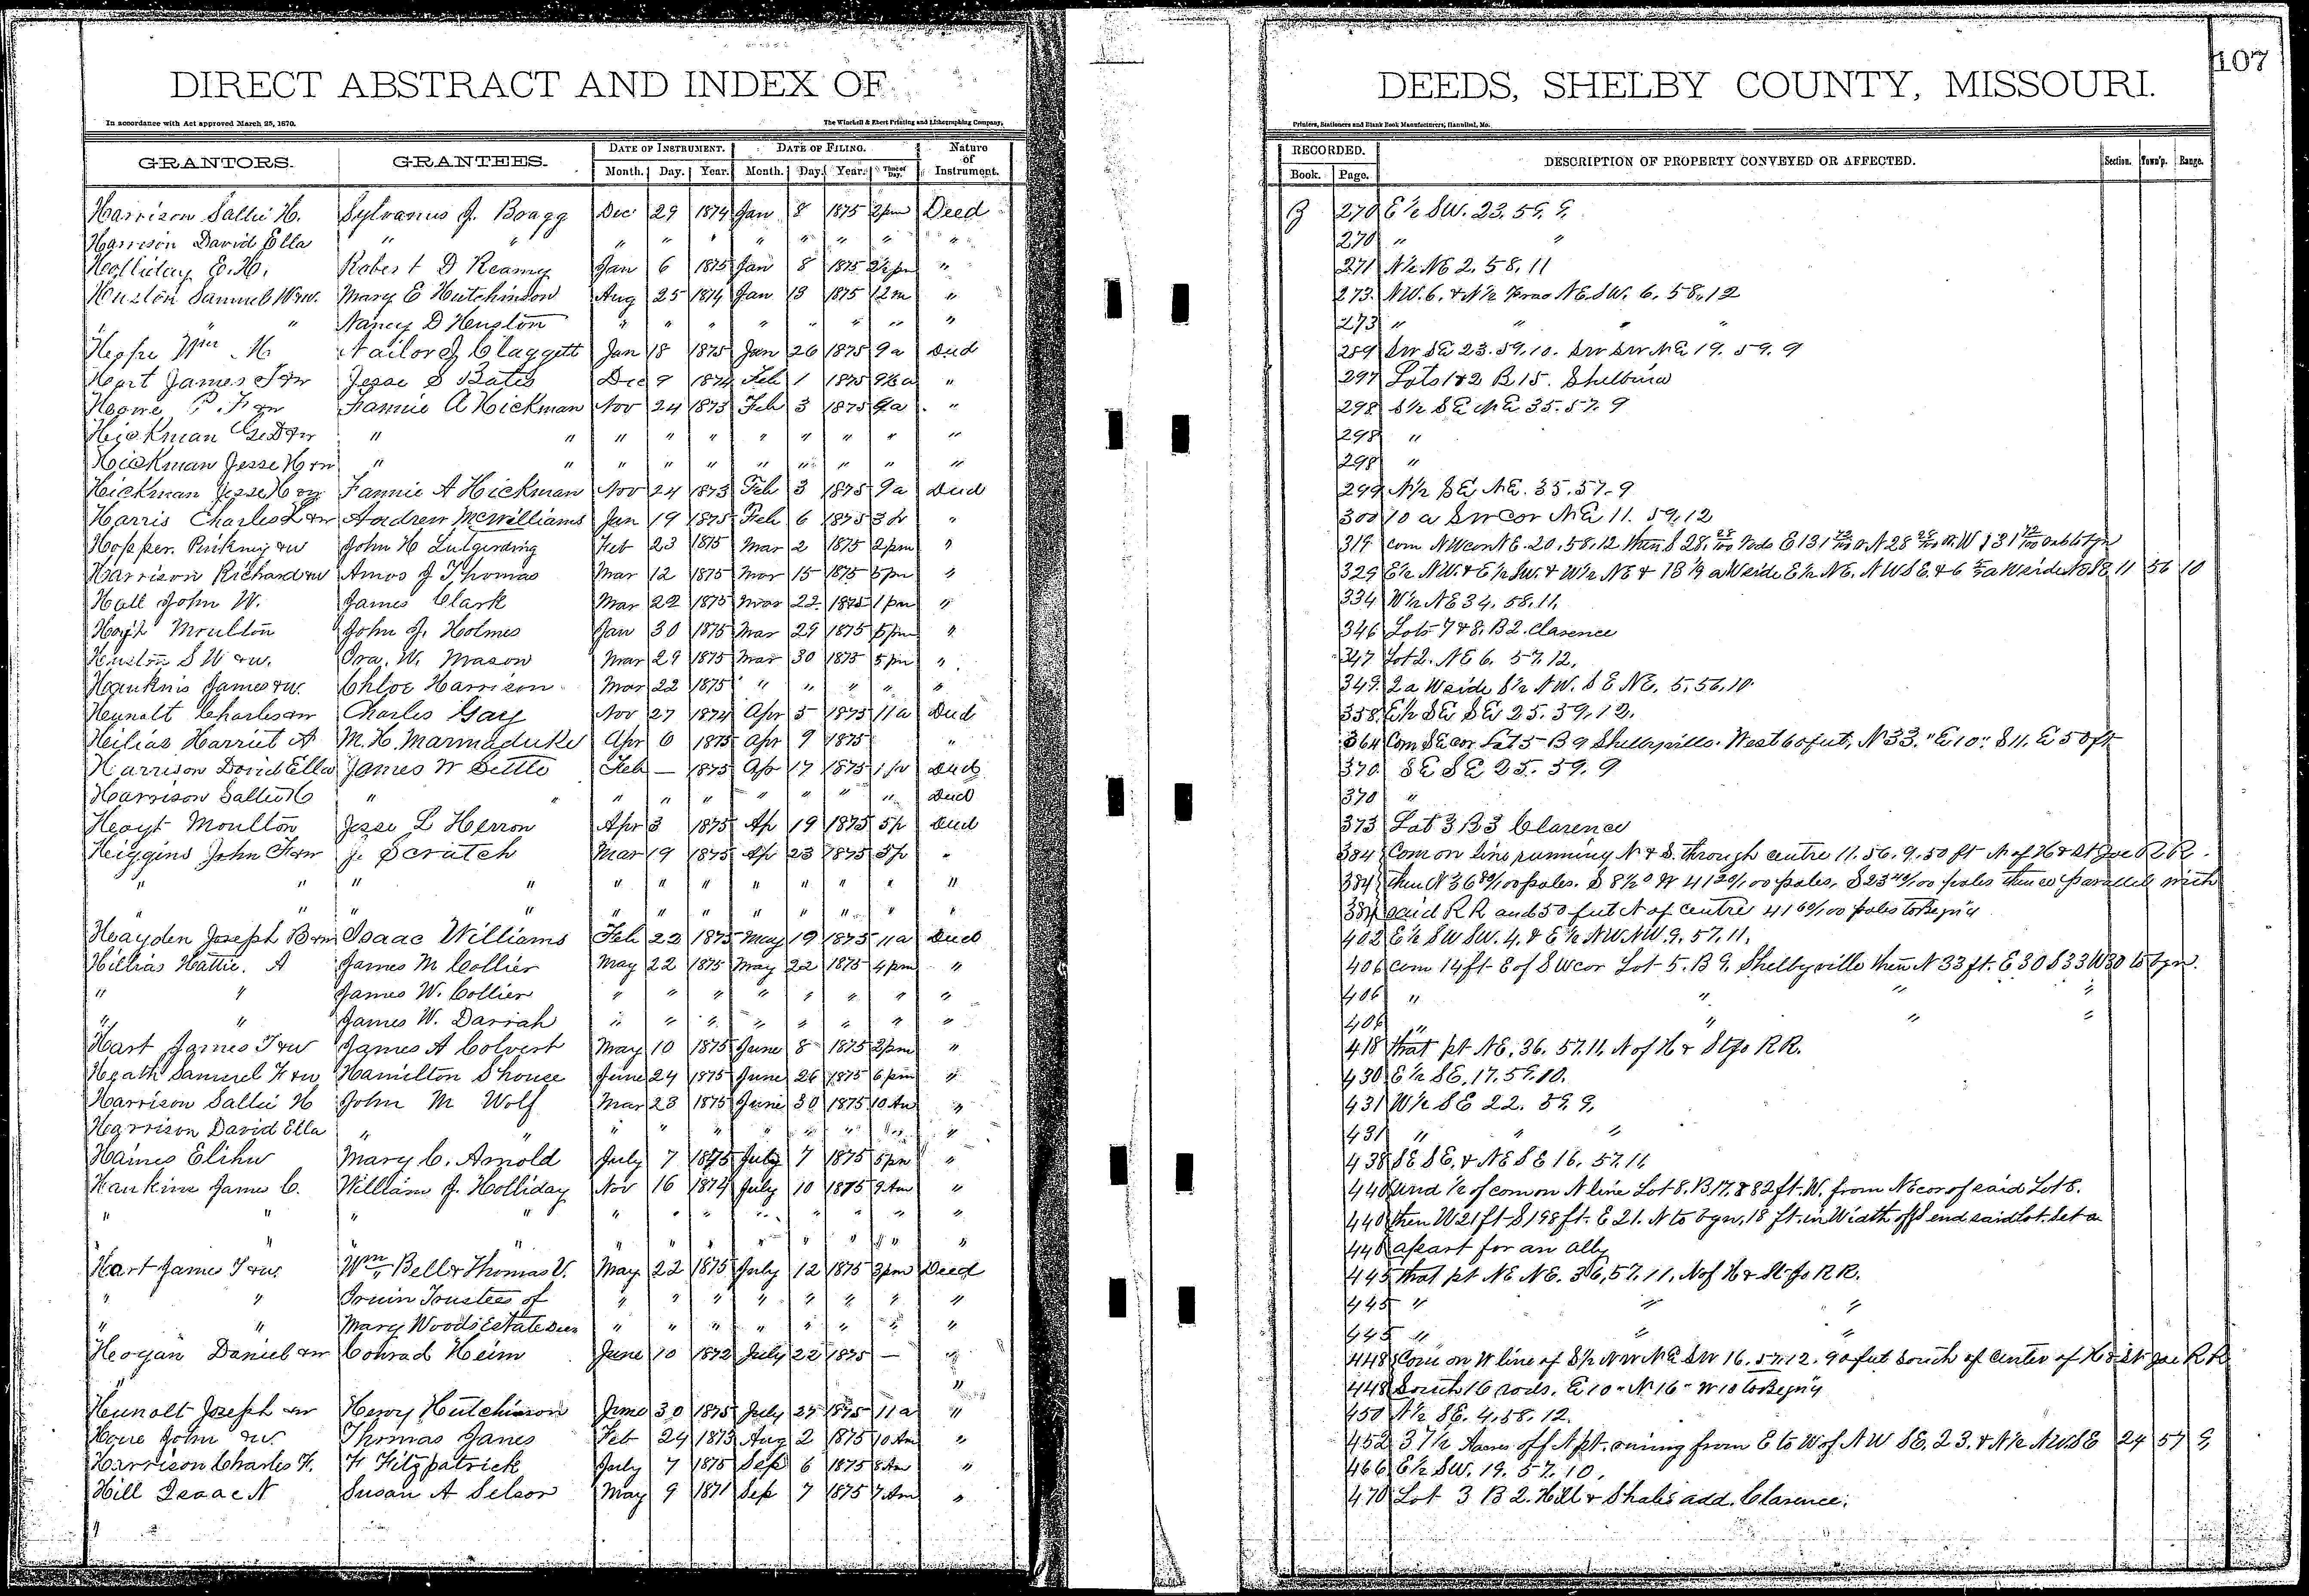 107
DIRECT ABSTRACT AND INDEX OF DEEDS, SHELBY COUNTY, MISSOURI.
In accordance with Act approved March 25, 1870. The Winchell & Ebert Printing and Lithographing Company, Printers, Stationers and Blank Book Manufacturers, Hannibal, Mo.
GRANTORS. GRANTEES. DATE OF INSTRUMENT. DATE OF FILING. Nature of Instrument. RECORDED. DESCRIPTION OF PROPERTY CONVEYED OR AFFECTED. Section. Town'p. Range.
Month. Day. Year. Month. Day. Year. Time of Day. Book. Page.
Harrison Sallie H. Sylvanus J. Bragg Dec 29 1874 Jan 8 1875 2pm Deed 270 E½ SW. 23. 59. 9.
Harrison David Ella " " " " " " " " " " 270 " "
Holliday E. H. Robert D Reamy Jan 6 1875 Jan 8 1875 2½pm " 271 N½ NE 2. 58. 11
Huston Samuel W &w. Mary E Hutchinson Aug 25 1874 Jan 13 1875 12m " 273. NW. 6. & N½ NE. SW. 6. 58. 12
" " Nancy D Huston " " " " " " " " 273 " " " "
Wm M Nailor J Claggett Jan 18 1875 Jan 26 1875 9a Deed 289 SW SE 23. 59. 10. SW SW NE 19. 59. 9
Hart James T &w Jesse S Bates Dec 9 1874 Feb 1 1875 9½a " 297 Lots 1&2 B 15. Shelbina
P. F &w Fannie A Hickman Nov 24 1873 Feb 3 1875 9a " 298 S½ SE NE 35. 57. 9
Hickman Geo D &w " " " " " " " " " " 298 "
Hickman Jesse H &w " " " " " " " " " " 298 "
Hickman Jesse H &w Fannie A Hickman Nov 24 1873 Feb 3 1875 9a Deed 299 N½ SE NE. 35. 57. 9
Harris Charles L &w Andrew McWilliams Jan 19 1875 Feb 6 1875 3p " 300 10 a SW cor NE 11. 59. 12
Hopper. Pinkney &w John H Lutgerding Feb 23 1875 Mar 2 1875 2pm " 319 com NW cor NE. 20. 58. 12 then S 28. 28/100 rods E 131
Harrison Richard &w Amos J Thomas Mar 12 1875 Mar 15 1875 5pm " 329 E½ NW. & E½ SW. & W½ NE & 18 ½ a W side E½ NE. NW SE. & 6 a W side 11 56 10
Hall John W. James Clark Mar 22 1875 Mar 22 1875 1pm " 334 W½ NE 34. 58. 11.
Hoyt Moulton John J. Holmes Jan 30 1875 Mar 29 1875 5pm " 346 Lots 7 & 8. B 2. Clarence
Huston S W &w. Ora. W. Mason Mar 29 1875 Mar 30 1875 5pm " 347 Lot 2. NE 6. 57. 12.
Hankins James &w. Chloe Harrison Mar 22 1875 " " " " " 349. 2 a W side S½ NW. SE NE. 5. 56. 10.
Hunolt Charles &w Charles Gay Nov 27 1874 Apr 5 1875 11a Deed 358. E½ SE SE 25. 59. 12.
Heilias Harriet A M. H. Marmaduke Apr 6 1875 Apr 9 1875 " 364 Com SE cor Lot 5 B 9 Shelbyville. West 60 feet, N 33. " E 10 " S 11. E 50 ft
Harrison David Ella James W Settle Feb — 1875 Apr 17 1875 1p Deed 370 SE SE 25. 59. 9
Harrison Sallie H " " " " " " " " " Deed 370 "
Hoyt Moulton Jesse L Herron Apr 3 1875 Ap 19 1875 5p Deed 373 Lot 3 B 3 Clarence
Higgins John C &w J. Scratch Mar 19 1875 Ap 23 1875 5p " 384 Com on line running N & S. through centre 11. 56. 9. 50 ft N of H & St Joe R R.
" " " " " " " " " " " " 384 then N 36 80/100 poles. S 8½° W 41 20/100 poles, S 23 40/100 poles thence parallel with
" " " " " " " " " " " " 384 said RR and 50 feet N of centre 41 60/100 poles to Begn'g
Hayden Joseph B &w Isaac Williams Feb 22 1875 May 19 1875 11a Deed 402 E½ SW SW. 4. & E½ NW NW. 9. 57. 11.
Hillias Hattie. A James M Collier May 22 1875 May 22 1875 4pm " 406 com 14 ft E of SW cor Lot 5. B 9. Shelbyville then N 33 ft. E 30 S 33 W 30 to bgn.
" " James W. Collier " " " " " " " " 406 " " " "
" " James W. Darrah " " " " " " " " 406 " " " "
Hart James T &w James A Colvert May 10 1875 June 8 1875 2pm " 418 that pt NE. 36. 57. 11. N of H & St Jo RR.
Heath Samuel H &w Hamilton Shouse June 24 1875 June 26 1875 6pm " 430 E½ SE. 17. 59. 10.
Harrison Sallie H John M Wolf Mar 23 1875 June 30 1875 10 Am " 431 W½ SE 22. 59. 9.
Harrison David Ella " " " " " " " " " " 431 " " "
Haines Elihu Mary C. Arnold July 7 1875 July 7 1875 5pm " 438 SE SE. & NE SE 16. 57. 11
Hankins James C. William J. Holliday Nov 16 1874 July 10 1875 9 Am " 440 und ½ of com on N line Lot 8. B 17. & 82 ft. W. from NE cor of said Lot 8.
" " " " " " " " " " " " 440 then W 21 ft S 198 ft. E 21. N to bgn, 18 ft. in Width off S end said Lot. Set a
" " " " " " " " " " " 440 apart for an ally
Hart James T &w. Wm Bell & Thomas V. May 22 1875 July 12 1875 3pm Deed 445 that pt NE NE. 36, 57. 11, N of H & St Jo RR.
" " Irvin Trustees of " " " " " " " " 445 " " "
" " Mary Woods Estate " " " " " " " " 445 " " "
Hogan Daniel &w Conrad Heim June 10 1872 July 22 1875 — " 448 Com on W line of S½ NW NE SW 16. 57. 12. 90 feet South of center of H & St Joe R R
" " 448 South 16 rods. E 10 " N 16 " W 10 to Begn'g
Hunolt Joseph &w Henry Hutchinson June 30 1875 July 27 1875 11a " 450 N½ SE. 4. 58. 12.
John &w. Thomas Janes Feb 24 1873 Aug 2 1875 10 Am " 452 37½ Acres off N pt. runing from E to W of NW SE. 23. & N½ NW SE 24 57 9
Harrison Charles H. H Fitzpatrick July 7 1875 Sep 6 1875 8 Am " 466 E½ SW. 19. 57. 10.
Hill Isaac N Susan A Selsor May 9 1871 Sep 7 1875 7 Am " 470 Lot 3 B 2. Hill & Shales add. Clarence.